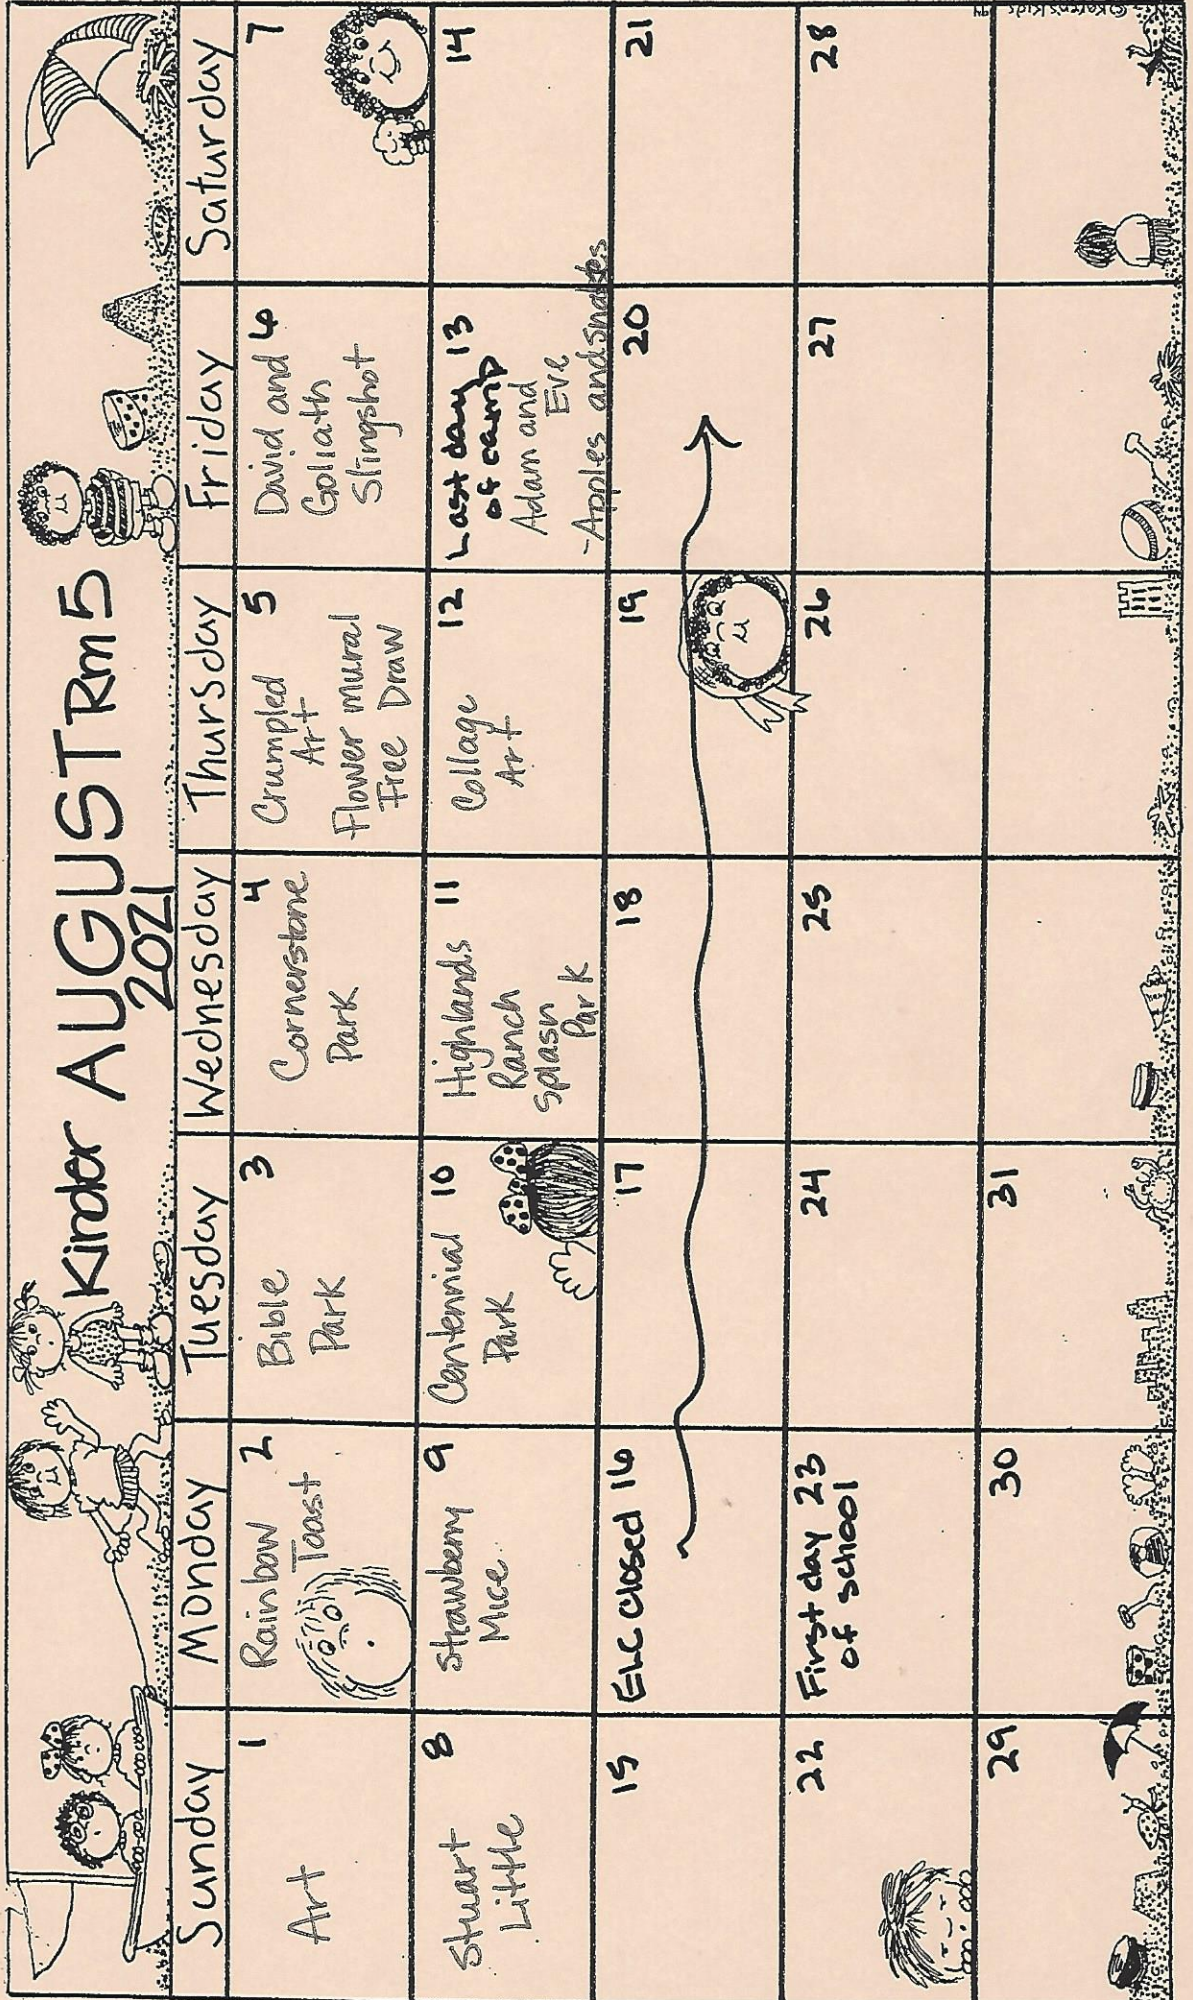 Kinder AUGUST Rm 5
2021
Sunday Monday Tuesday Wednesday Thursday Friday Saturday
1
Art
2
Rainbow
Toast
3
Bible
Park
4
Cornerstone
Park
5
Crumpled
Art
Flower mural
Free Draw
6
David and
Goliath
Slingshot
7
8
Stuart
Little
9
Strawberry
Mice
10
Centennial
Park
11
Highlands
Ranch
Splash
Park
12
Collage
Art
Last day 13
of camp
Adam and
Eve
-Apples and snakes
14
15
ELC Closed 16
17
18
19
20
21
22
First day 23
of school
24
25
26
27
28
29
30
31
©Karen's Kids